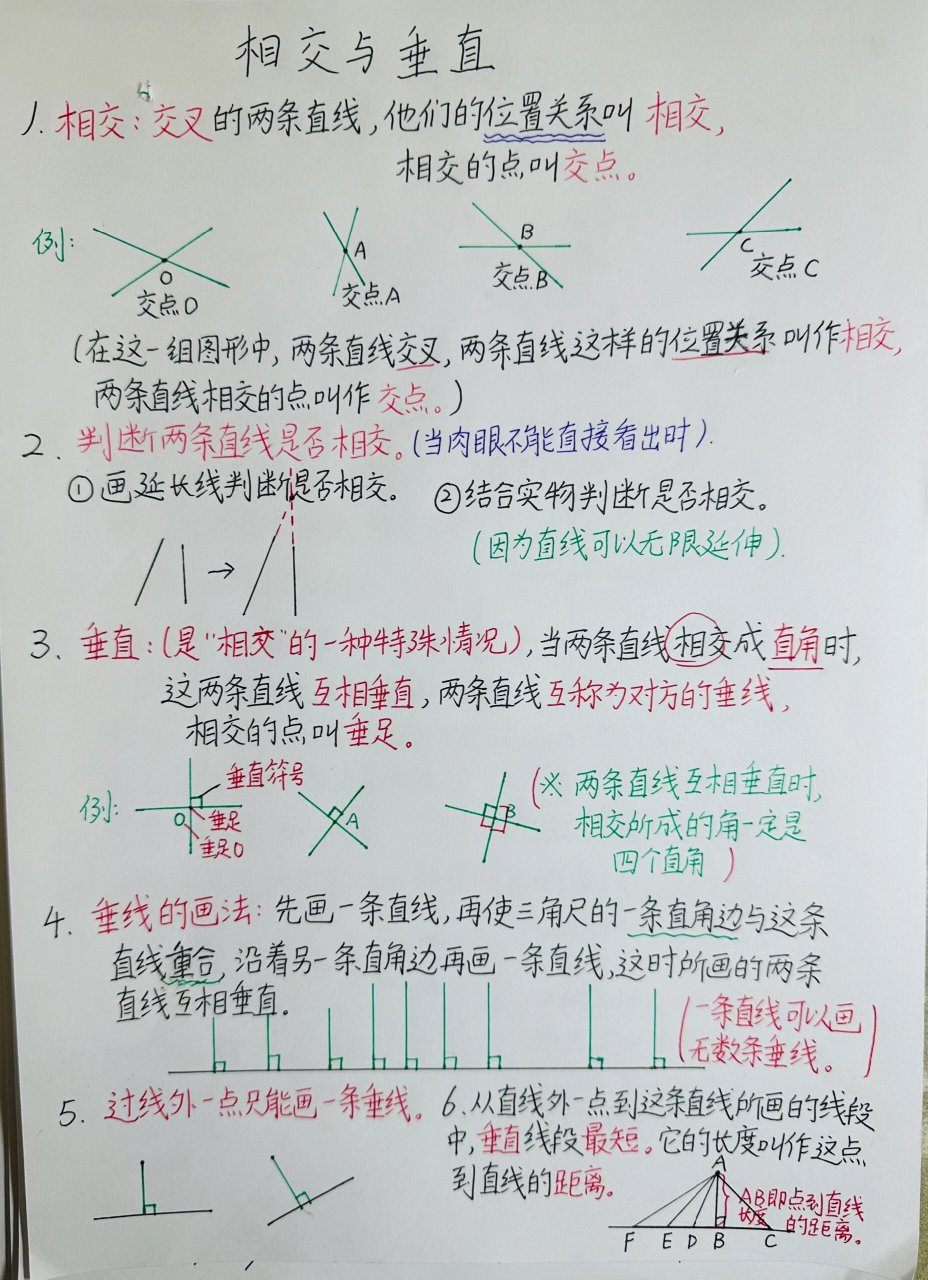 相交与垂直
1. 相交：交叉的两条直线，他们的位置关系叫 相交，
相交的点叫交点。
例：
O
交点O
A
交点A
B
交点B
C
交点C
(在这一组图形中，两条直线交叉，两条直线这样的位置关系叫作相交，
两条直线相交的点叫作 交点。)
2、判断两条直线是否相交。(当肉眼不能直接看出时).
①画延长线判断是否相交。
②结合实物判断是否相交。
(因为直线可以无限延伸).
3、垂直：(是“相交”的一种特殊情况)，当两条直线相交成直角时，
这两条直线 互相垂直，两条直线互称为对方的垂线，
相交的点叫垂足。
例：
垂直符号
O
垂足
垂足O
A
B
(※ 两条直线互相垂直时，
相交所成的角一定是
四个直角)
4、垂线的画法：先画一条直线，再使三角尺的一条直角边与这条
直线重合，沿着另一条直角边再画一条直线，这时所画的两条
直线互相垂直。
(一条直线可以画
无数条垂线。)
5、过线外一点只能画一条垂线。
6、从直线外一点到这条直线所画的线段
中，垂直线段最短。它的长度叫作这点
到直线的距离。
A
AB即点到直线
长度 的距离。
F E D B C